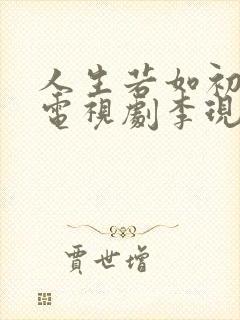 人生若如初
電視劇李現
賈世增